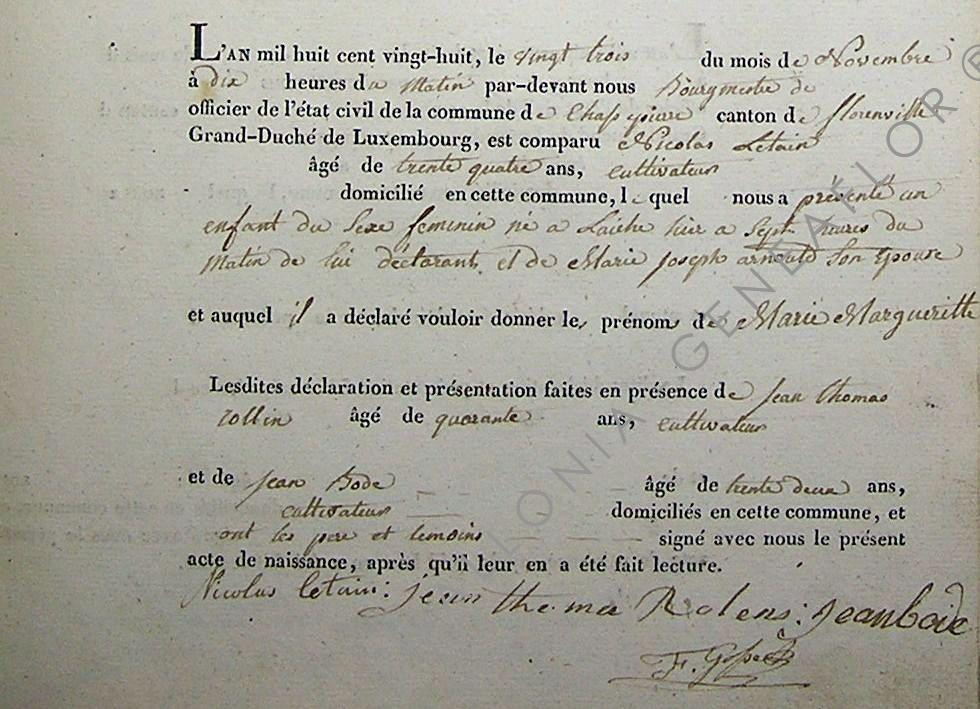 L'AN mil huit cent vingt-huit, le vingt trois du mois de Novembre
à dix heures du Matin par-devant nous Bourgmestre de
officier de l'état civil de la commune de Chassepierre canton de florenville
Grand-Duché de Luxembourg, est comparu Nicolas Letain
âgé de trente quatre ans, cultivateur
domicilié en cette commune, le quel nous a présenté un
enfant du Sexe feminin né a Laiche hier a Sept heures du
Matin de lui déclarant et de Marie joseph arnould Son epouse
et auquel il a déclaré vouloir donner les prénoms de Marie Margueritte
Lesdites déclaration et présentation faites en présence de jean thomas
rollin âgé de quarante ans, cultivateur
et de jean Bode âgé de trente deux ans,
cultivateur domiciliés en cette commune, et
ont les pere et temoins signé avec nous le présent
acte de naissance, après qu'il leur en a été fait lecture.
Nicolas letain: jean thomas Rolens: jean bode
F.
LONIA GENEALOR